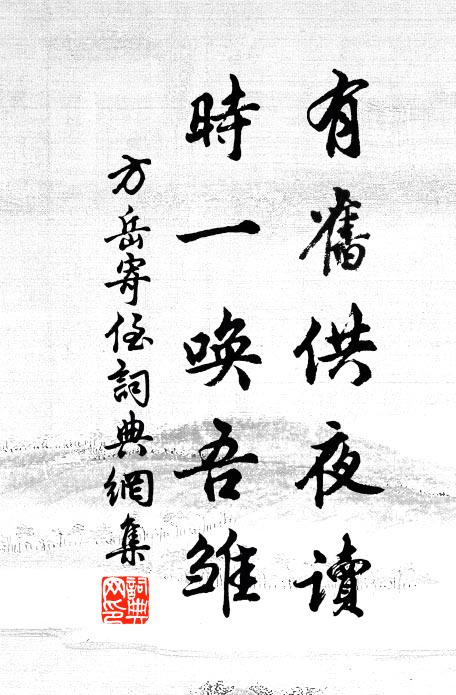 有舊供夜讀
時一喚吾雛
方岳寄侄詞典網集
詞典
网印